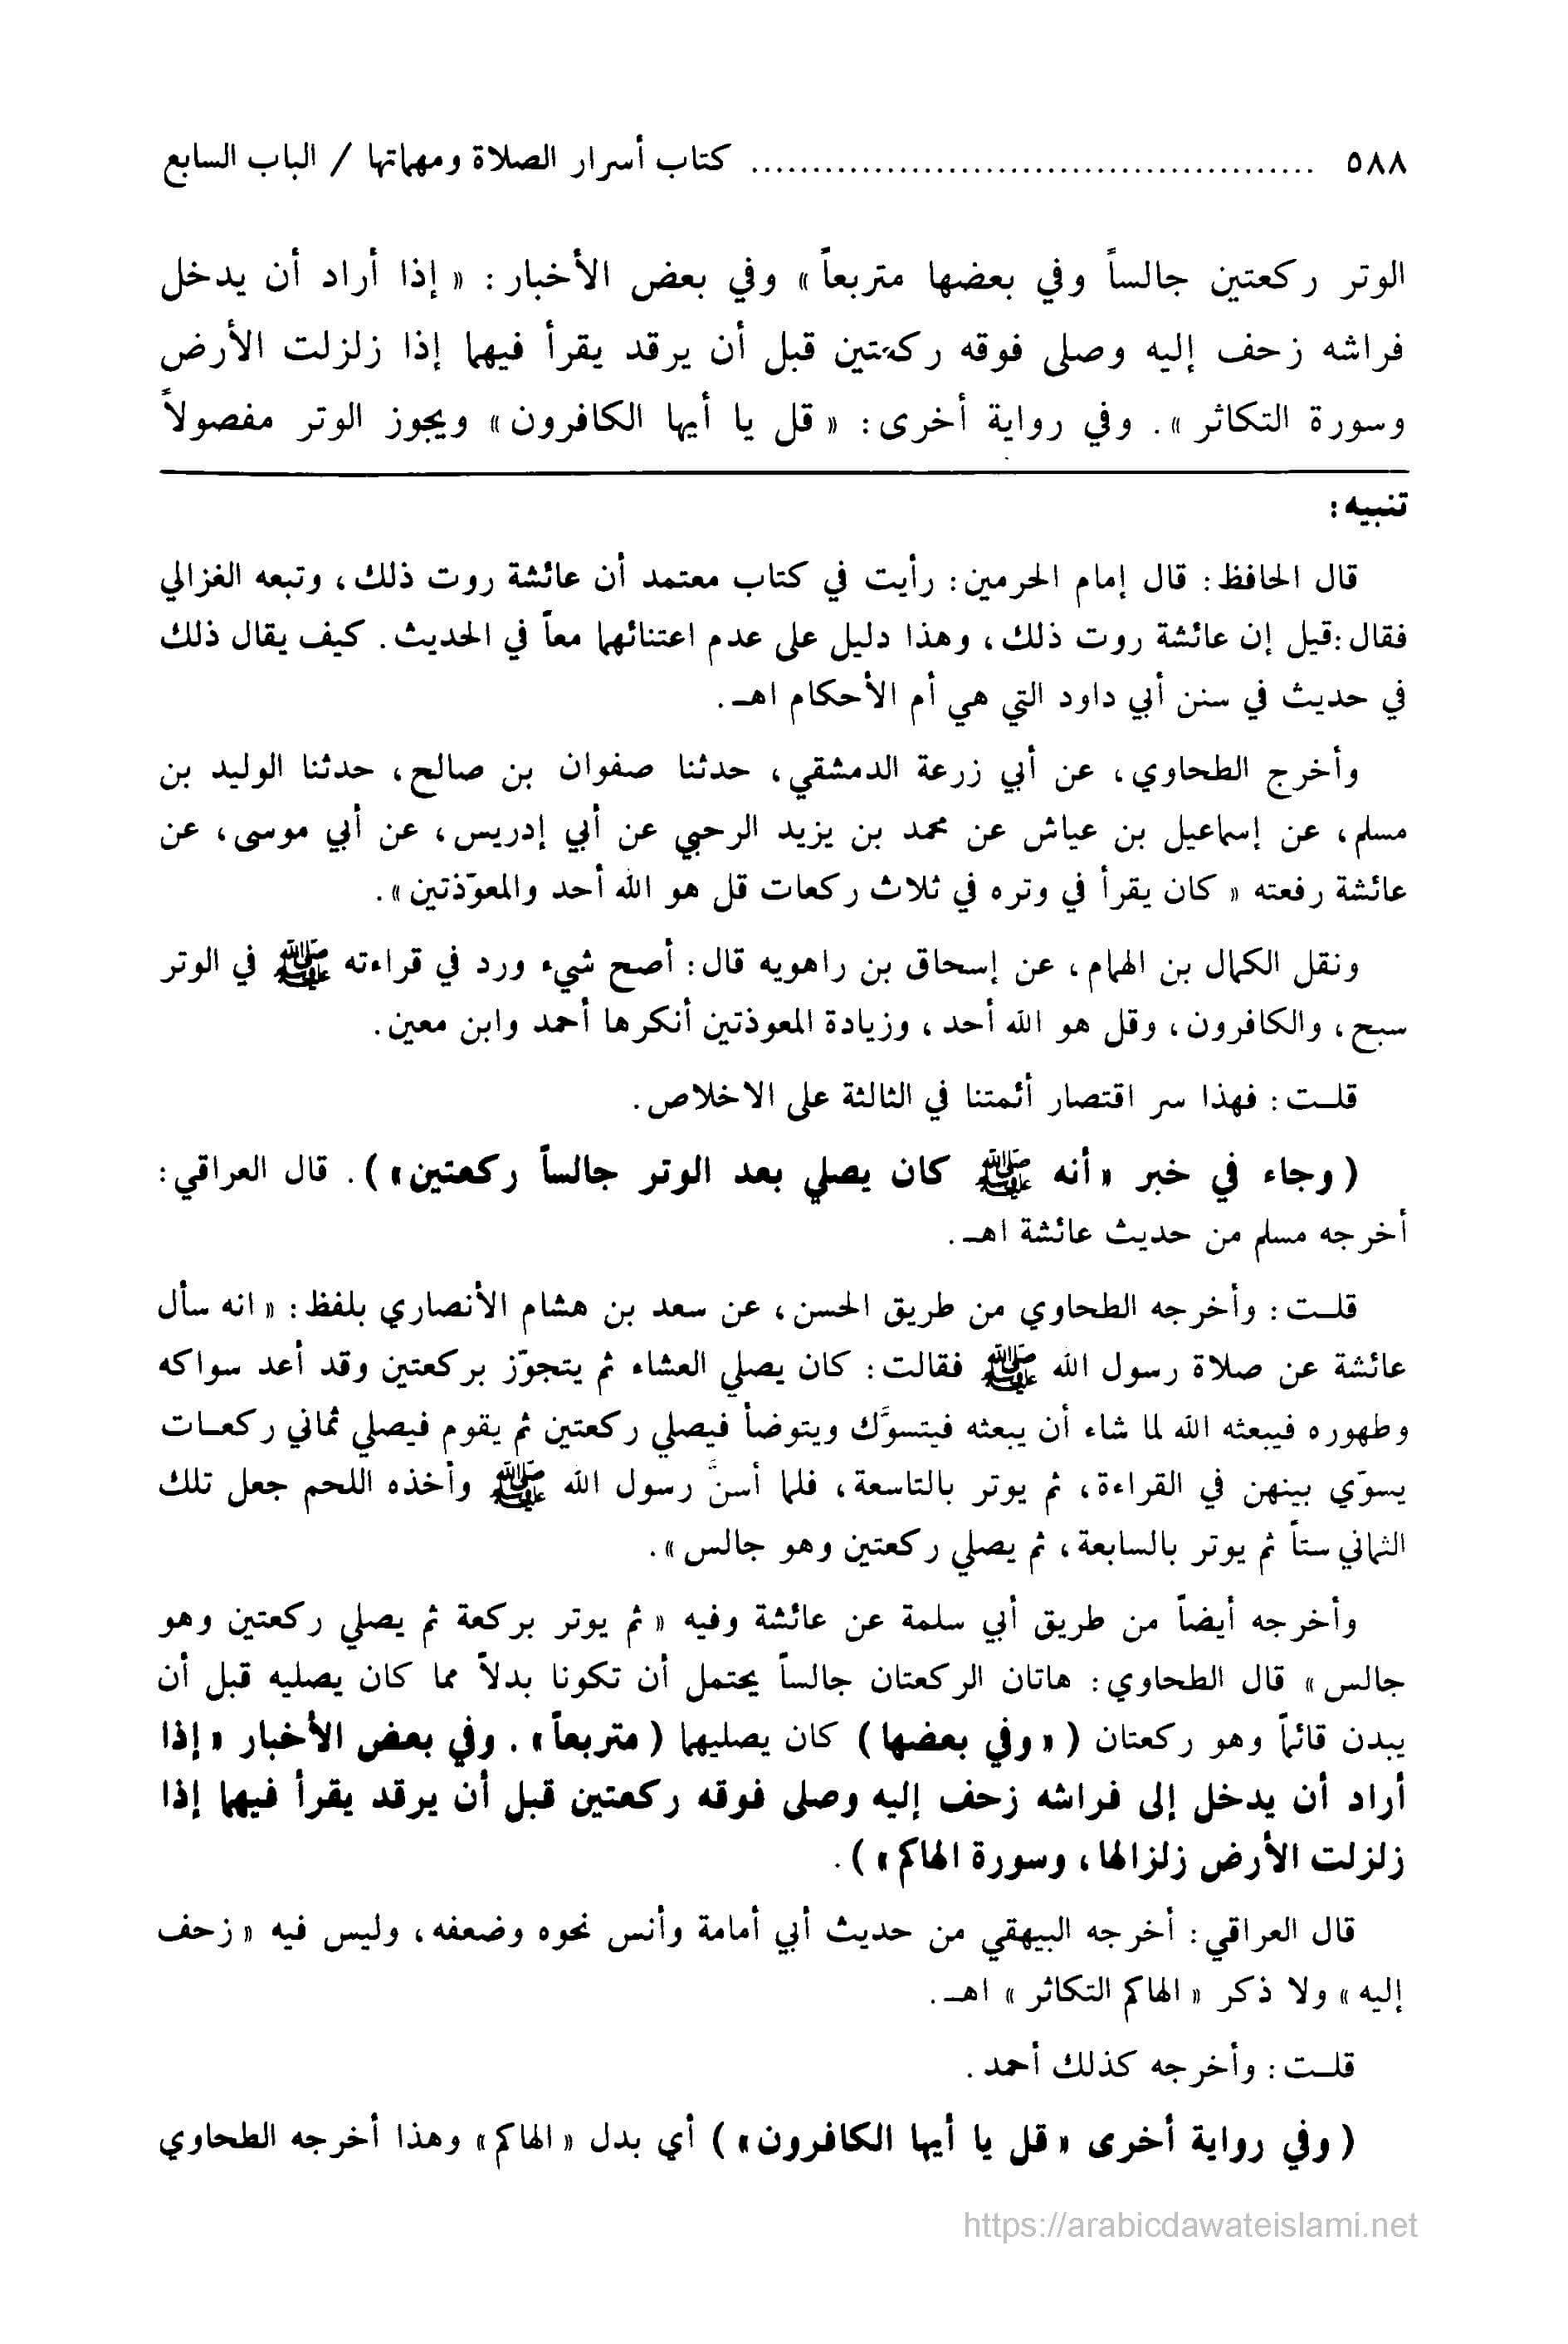 ٥٨٨ .............................................. كتاب أسرار الصلاة ومهماتها / الباب السابع
الوتر ركعتين جالساً وفي بعضها متربعاً » وفي بعض الأخبار : « إذا أراد أن يدخل
فراشه زحف إليه وصلى فوقه ركعتين قبل أن يرقد يقرأ فيهما إذا زلزلت الأرض
وسورة التكاثر » . وفي رواية أخرى : « قل يا أيها الكافرون » ويجوز الوتر مفصولاً
تنبيه :
قال الحافظ : قال إمام الحرمين : رأيت في كتاب معتمد أن عائشة روت ذلك ، وتبعه الغزالي
فقال : قيل إن عائشة روت ذلك ، وهذا دليل على عدم اعتنائهما معاً في الحديث . كيف يقال ذلك
في حديث في سنن أبي داود التي هي أم الأحكام اهـ .
وأخرج الطحاوي ، عن أبي زرعة الدمشقي ، حدثنا صفوان بن صالح ، حدثنا الوليد بن
مسلم ، عن إسماعيل بن عياش عن محمد بن يزيد الرحبي عن أبي إدريس ، عن أبي موسى ، عن
عائشة رفعته « كان يقرأ في وتره في ثلاث ركعات قل هو الله أحد والمعوّذتين » .
ونقل الكمال بن الهمام ، عن إسحاق بن راهويه قال : أصح شيء ورد في قراءته ﷺ في الوتر
سبح ، والكافرون ، وقل هو الله أحد ، وزيادة المعوذتين أنكرها أحمد وابن معين .
قلـت : فهذا سر اقتصار أئمتنا في الثالثة على الاخلاص .
( وجاء في خبر « أنه ﷺ كان يصلي بعد الوتر جالساً ركعتين » ) . قال العراقي :
أخرجه مسلم من حديث عائشة اهـ .
قلـت : وأخرجه الطحاوي من طريق الحسن ، عن سعد بن هشام الأنصاري بلفظ : « انه سأل
عائشة عن صلاة رسول الله ﷺ فقالت : كان يصلي العشاء ثم يتجوّز بركعتين وقد أعد سواكه
وطهوره فيبعثه الله لما شاء أن يبعثه فيتسوَّك ويتوضأ فيصلي ركعتين ثم يقوم فيصلي ثماني ركعـات
يسوّي بينهن في القراءة ، ثم يوتر بالتاسعة ، فلما أسنَّ رسول الله ﷺ وأخذه اللحم جعل تلك
الثماني ستاً ثم يوتر بالسابعة ، ثم يصلي ركعتين وهو جالس » .
وأخرجه أيضاً من طريق أبي سلمة عن عائشة وفيه « ثم يوتر بركعة ثم يصلي ركعتين وهو
جالس » قال الطحاوي : هاتان الركعتان جالساً يحتمل أن تكونا بدلاً مما كان يصليه قبل أن
يبدن قائماً وهو ركعتان ( « وفي بعضها ) كان يصليهما ( متربعاً » . وفي بعض الأخبار « إذا
أراد أن يدخل إلى فراشه زحف إليه وصلى فوقه ركعتين قبل أن يرقد يقرأ فيهما إذا
زلزلت الأرض زلزالها ، وسورة الهاكم » ) .
قال العراقي : أخرجه البيهقي من حديث أبي أمامة وأنس نحوه وضعفه ، وليس فيه « زحف
إليه » ولا ذكر « الهاكم التكاثر » اهـ .
قلـت : وأخرجه كذلك أحمد .
( وفي رواية أخرى « قل يا أيها الكافرون » ) أي بدل « الهاكم » وهذا أخرجه الطحاوي
https://arabicdawateislami.net